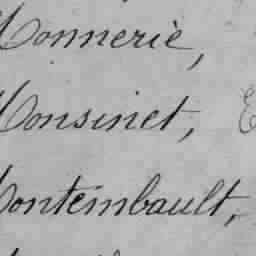 Monnerie,
Monsinet, E
Montembault,